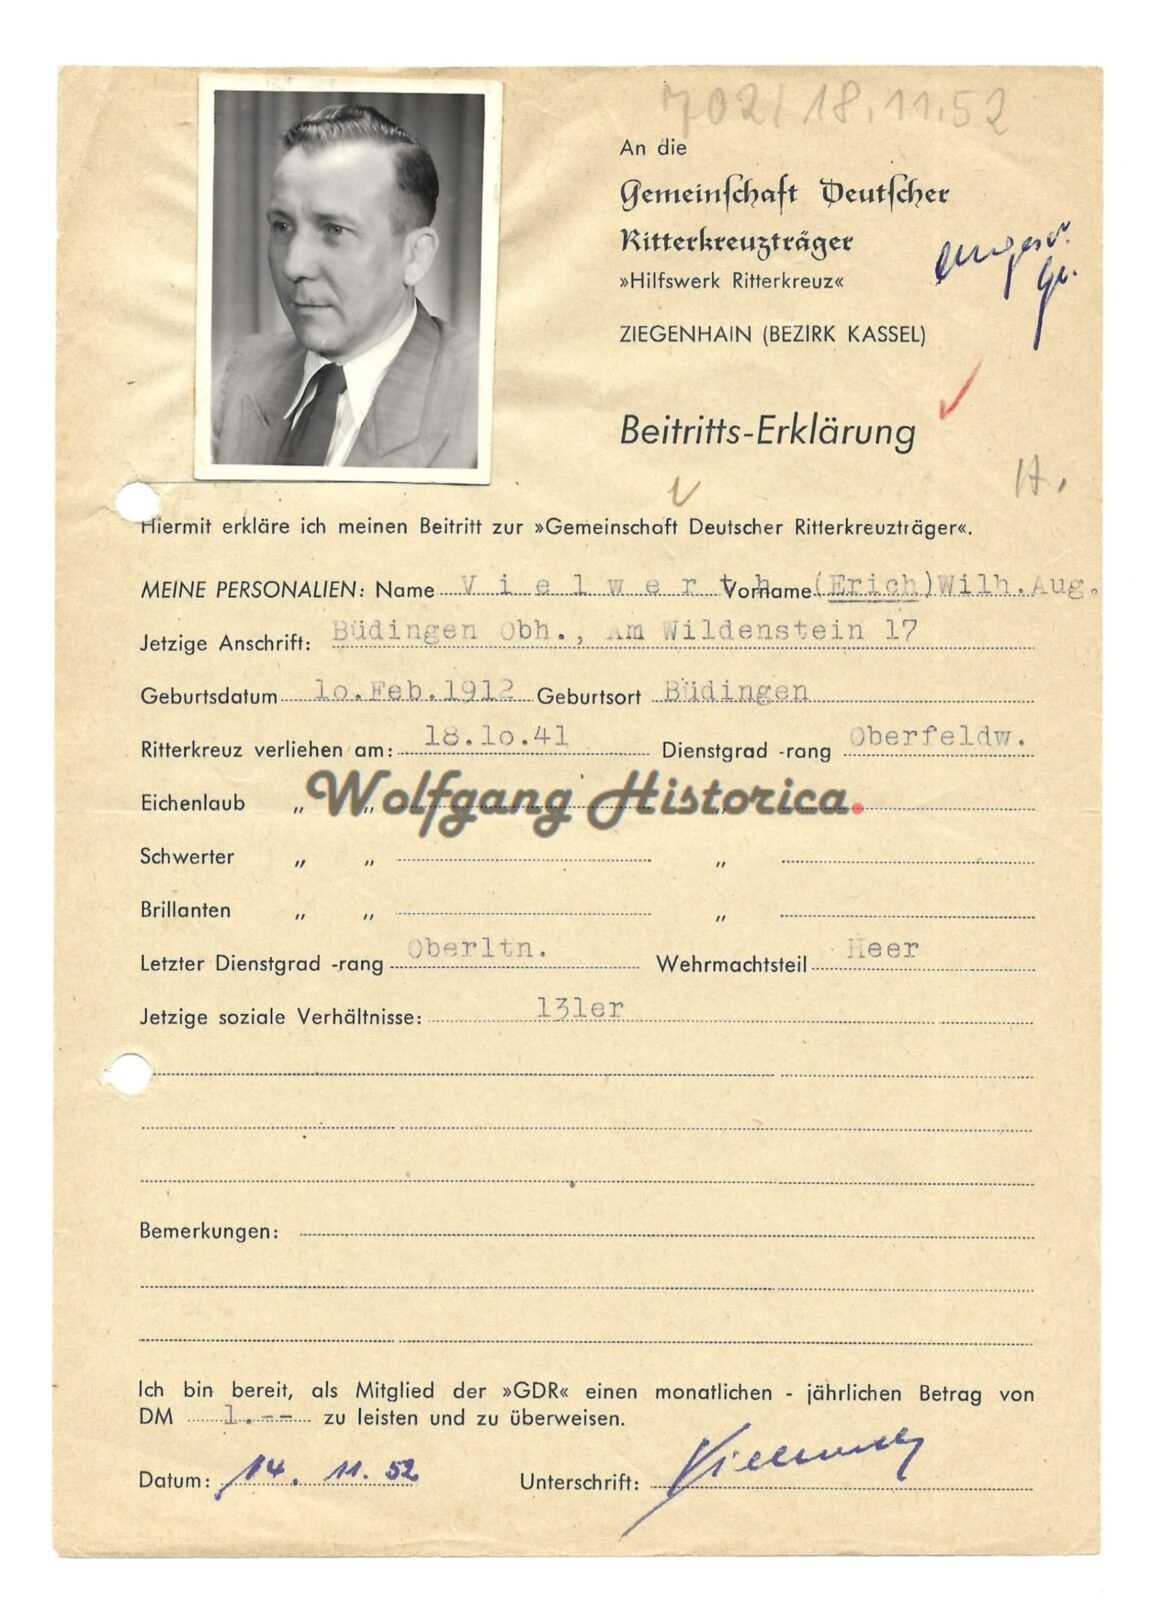 702/18.11.52
An die
Gemeinschaft Deutscher
Ritterkreuzträger
»Hilfswerk Ritterkreuz«
ZIEGENHAIN (BEZIRK KASSEL)
Beitritts-Erklärung
H.
Hiermit erkläre ich meinen Beitritt zur »Gemeinschaft Deutscher Ritterkreuzträger«.
MEINE PERSONALIEN: Name Vielwerth Vorname (Erich)Wilh.Aug.
Jetzige Anschrift: Büdingen Obh., Am Wildenstein 17
Geburtsdatum 1o.Feb.1912 Geburtsort Büdingen
Ritterkreuz verliehen am: 18.1o.41 Dienstgrad -rang Oberfeldw.
Eichenlaub „ „ „
Wolfgang Historica.
Schwerter „ „ „
Brillanten „ „ „
Letzter Dienstgrad -rang Oberltn. Wehrmachtsteil Heer
Jetzige soziale Verhältnisse: 131er
Bemerkungen:
Ich bin bereit, als Mitglied der »GDR« einen monatlichen - jährlichen Betrag von
DM 1.-- zu leisten und zu überweisen.
Datum: 14. 11. 52 Unterschrift: Vielwerth